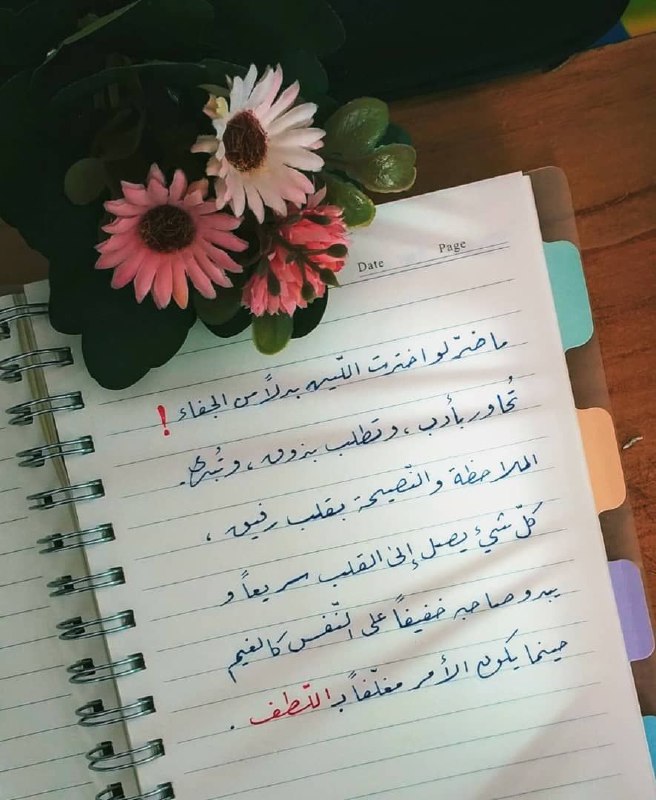 Date Page
ما ضرّ لو اخترت اللّين بدلًا من الجفاء !
تُحاور بأدب ، وتطلب بذوق ، وتُبدي
الملاحظة والنّصيحة بقلب رفيق ،
كلّ شيء يصل إلى القلب سريعاً و
يبدو صاحبه خفيفاً على النّفس كالغيم
حينما يكون الأمر مغلّفاً بـ اللّطف .